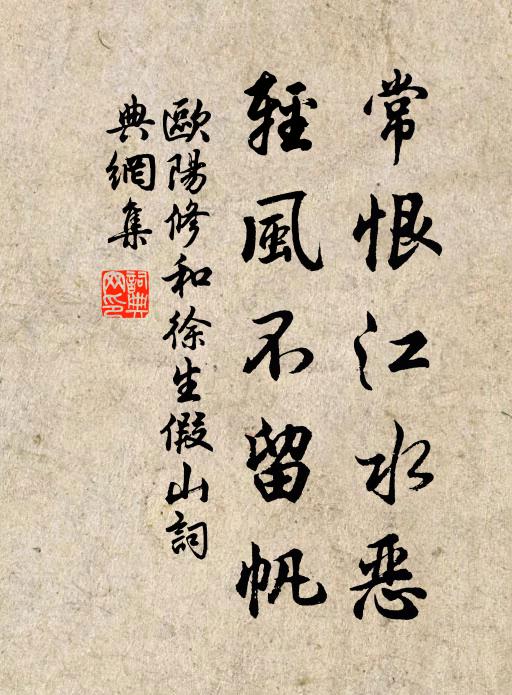 常恨江水恶
輕風不留帆
歐陽修和徐生假山詞
典網集
詞典网印